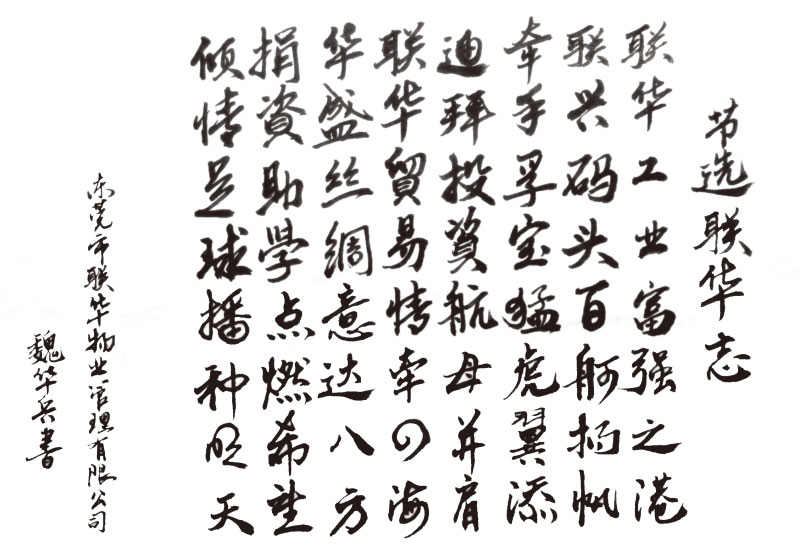 节选联华志
联华工业富强之港
联兴码头百舸扬帆
牵手孚宝猛虎翼添
迪拜投資航母并肩
联华貿易情牵四海
华盛丝綢意达八方
捐資助学点燃希望
倾情足球播种明天
东莞市联华物业管理有限公司
魏华兵書